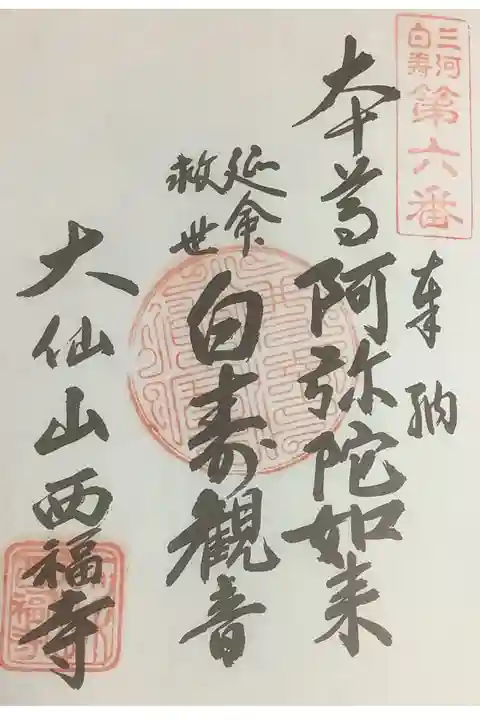 三河
白寿
第六番
奉納
本尊阿弥陀如来
延命
救世
白寿観音
大仙山西福寺